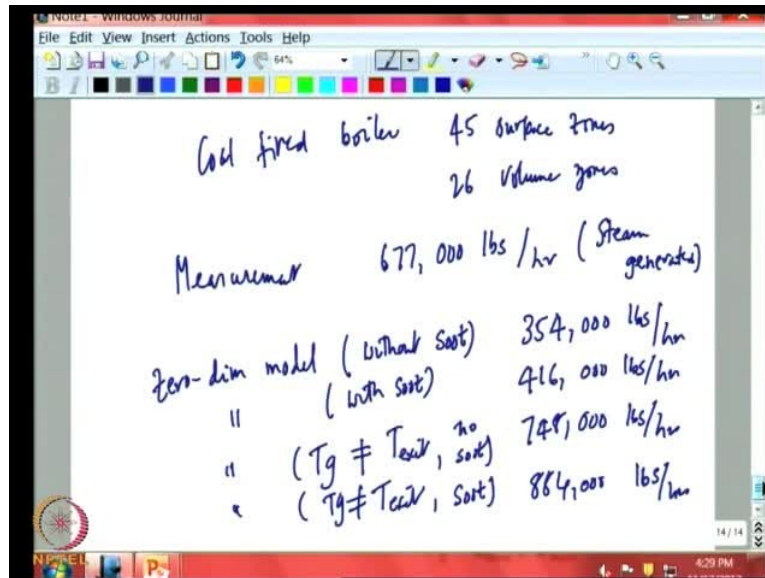 Note1 - Windows Journal
File Edit View Insert Actions Tools Help
64%
B I
Coal fired boiler 45 surface zones
26 volume zones
Measurement 677,000 lbs/hr (Steam generated)
Zero-dim model (without soot) 354,000 lbs/hr
" (with soot) 416,000 lbs/hr
" (Tg ≠ Texit, no soot) 748,000 lbs/hr
" (Tg ≠ Texit, soot) 884,000 lbs/hr
14 / 14
NPTEL
4:29 PM